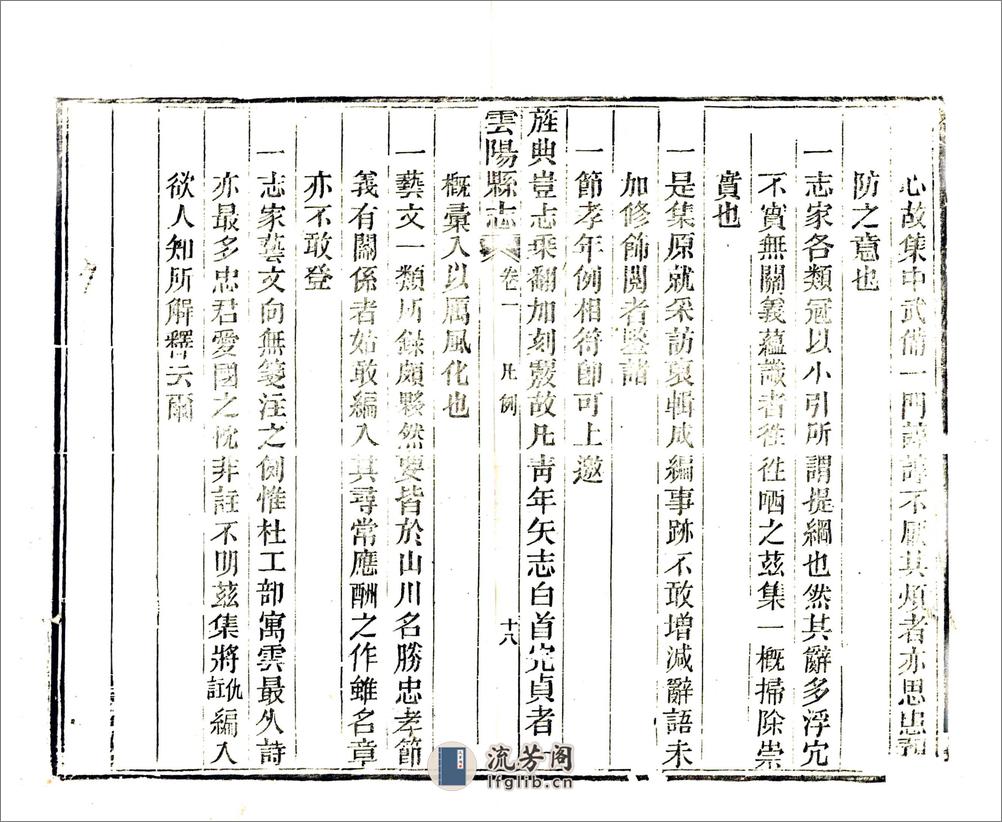 心故集中武備一門諄諄不厭其煩者亦思患預
防之意也
一志家各類冠以小引所謂提綱也然其辭多浮冗
不實無關義蘊識者往往哂之茲集一概掃除崇
實也
一是集原就采訪裒輯成編事跡不敢增減辭語未
加修飾閱者鑒諸
一節孝年例相符卽可上邀
旌典豈志乘翻加刻覈故凡靑年矢志白首完貞者
雲陽縣志 卷一 凡例 十八
概彙入以厲風化也
一藝文一類所錄頗夥然要皆於山川名勝忠孝節
義有關係者始敢編入其尋常應酬之作雖名章
亦不敢登
一志家藝文向無箋注之例惟杜工部寓雲最久詩
亦最多忠君愛國之忱非註不明茲集將仇註編入
欲人知所解釋云爾
流芳阁
lfglib.cn